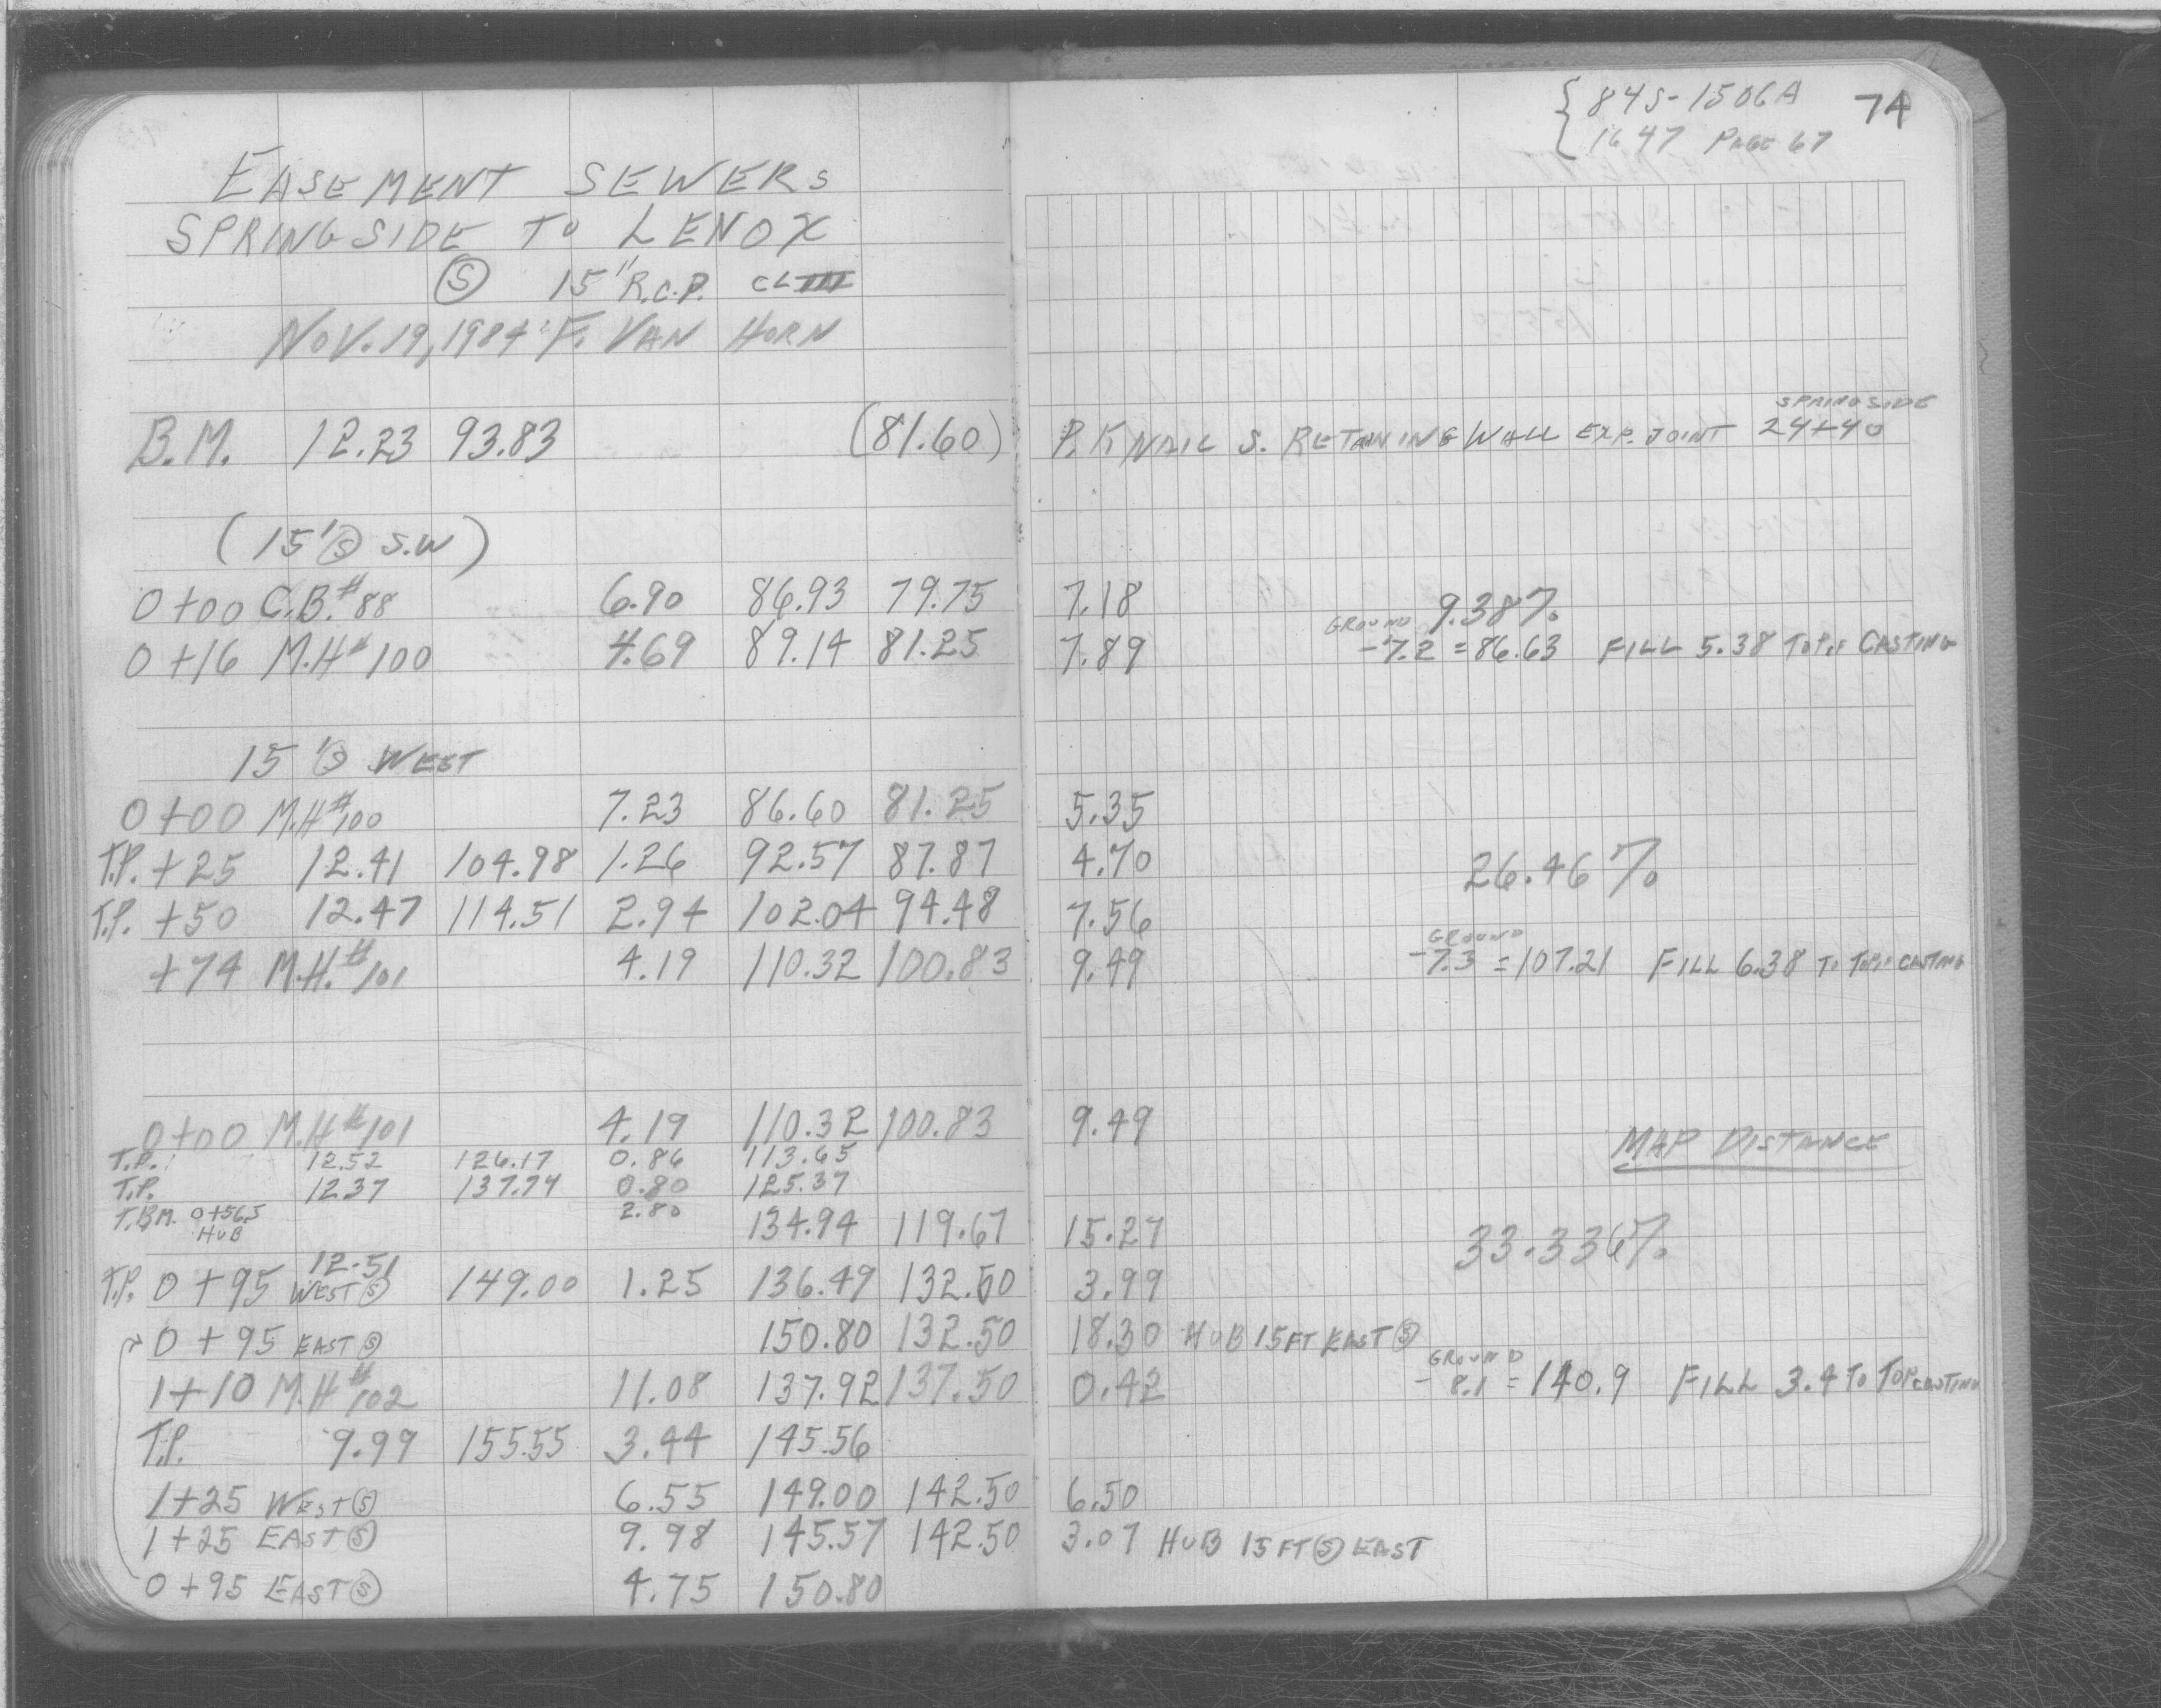 { 84S-1506A 74
1647 PAGE 67
EASEMENT SEWERS
SPRINGSIDE TO LENOX
Ⓢ 15" R.C.P. CL III
NOV. 19, 1984 F. VAN HORN
SPRINGSIDE
B.M. 12.23 93.83 (81.60) P.K NAIL S. RETAINING WALL EXP. JOINT 24+40
(15' Ⓢ S.W)
0+00 C.B.#88 6.90 86.93 79.75 7.18 9.38%
GROUND
0+16 M.H#100 4.69 89.14 81.25 7.89 -7.2 = 86.63 FILL 5.38 TOP OF CASTING
15' Ⓢ WEST
0+00 M.H#100 7.23 86.60 81.25 5.35
T.P. +25 12.41 104.98 1.26 92.57 87.87 4.70 26.46%
T.P. +50 12.47 114.51 2.94 102.04 94.48 7.56
GROUND
+74 M.H.#101 4.19 110.32 100.83 9.49 -7.3 = 107.21 FILL 6.38 TO TOP OF CASTING
0+00 M.H#101 4.19 110.32 100.83 9.49
MAP DISTANCE
T.P. 12.52 126.17 0.86 113.65
T.P. 12.37 137.74 0.80 125.37
T.B.M. 0+56.5 2.80
HUB 134.94 119.67 15.27 33.336%
12.51
T.P. 0+95 WEST Ⓢ 149.00 1.25 136.49 132.50 3.99
0+95 EAST Ⓢ 150.80 132.50 18.30 HUB 15FT EAST Ⓢ
GROUND
1+10 M.H#102 11.08 137.92 137.50 0.42 - 8.1 = 140.9 FILL 3.4 TO TOP CASTING
T.P. 9.99 155.55 3.44 145.56
1+25 WEST Ⓢ 6.55 149.00 142.50 6.50
1+25 EAST Ⓢ 9.98 145.57 142.50 3.07 HUB 15 FT Ⓢ EAST
0+95 EAST Ⓢ 4.75 150.80